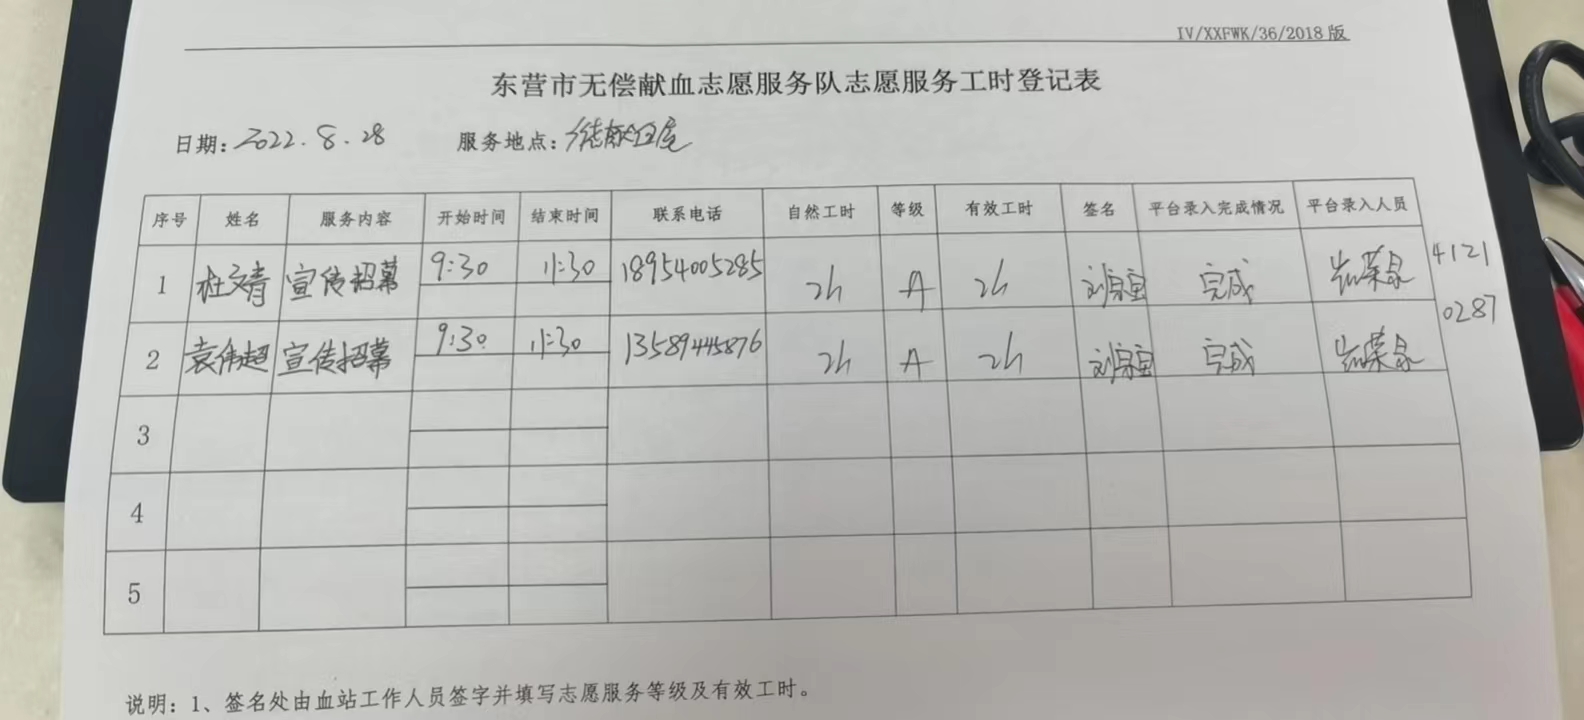 IV/XXFWK/36/2018 版
东营市无偿献血志愿服务队志愿服务工时登记表
日期: 2022.8.28 服务地点:
序号 姓名 服务内容 开始时间 结束时间 联系电话 自然工时 等级 有效工时 签名 平台录入完成情况 平台录入人员
1 杜文青 宣传招募 9:30 11:30 18954005285 2h A 2h 完成 4121
2 袁伟超 宣传招募 9:30 11:30 13589445876 2h A 2h 完成 0287
3
4
5
说明: 1、签名处由血站工作人员签字并填写志愿服务等级及有效工时。